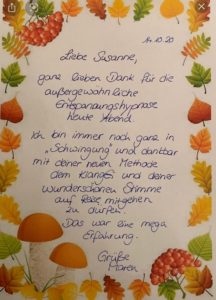 14.10.20
Liebe Susanne,
ganz lieben Dank für die
außergewöhnliche
Entspannungshypnose
heute Abend
Ich bin immer noch ganz in
"Schwingung" und dankbar
mit deiner neuen Methode
dem Klanges und deiner
wunderschönen Stimme
auf Reise mitgehen
zu dürfen.
Das war eine mega
Erfahrung.
Grüße
Maren